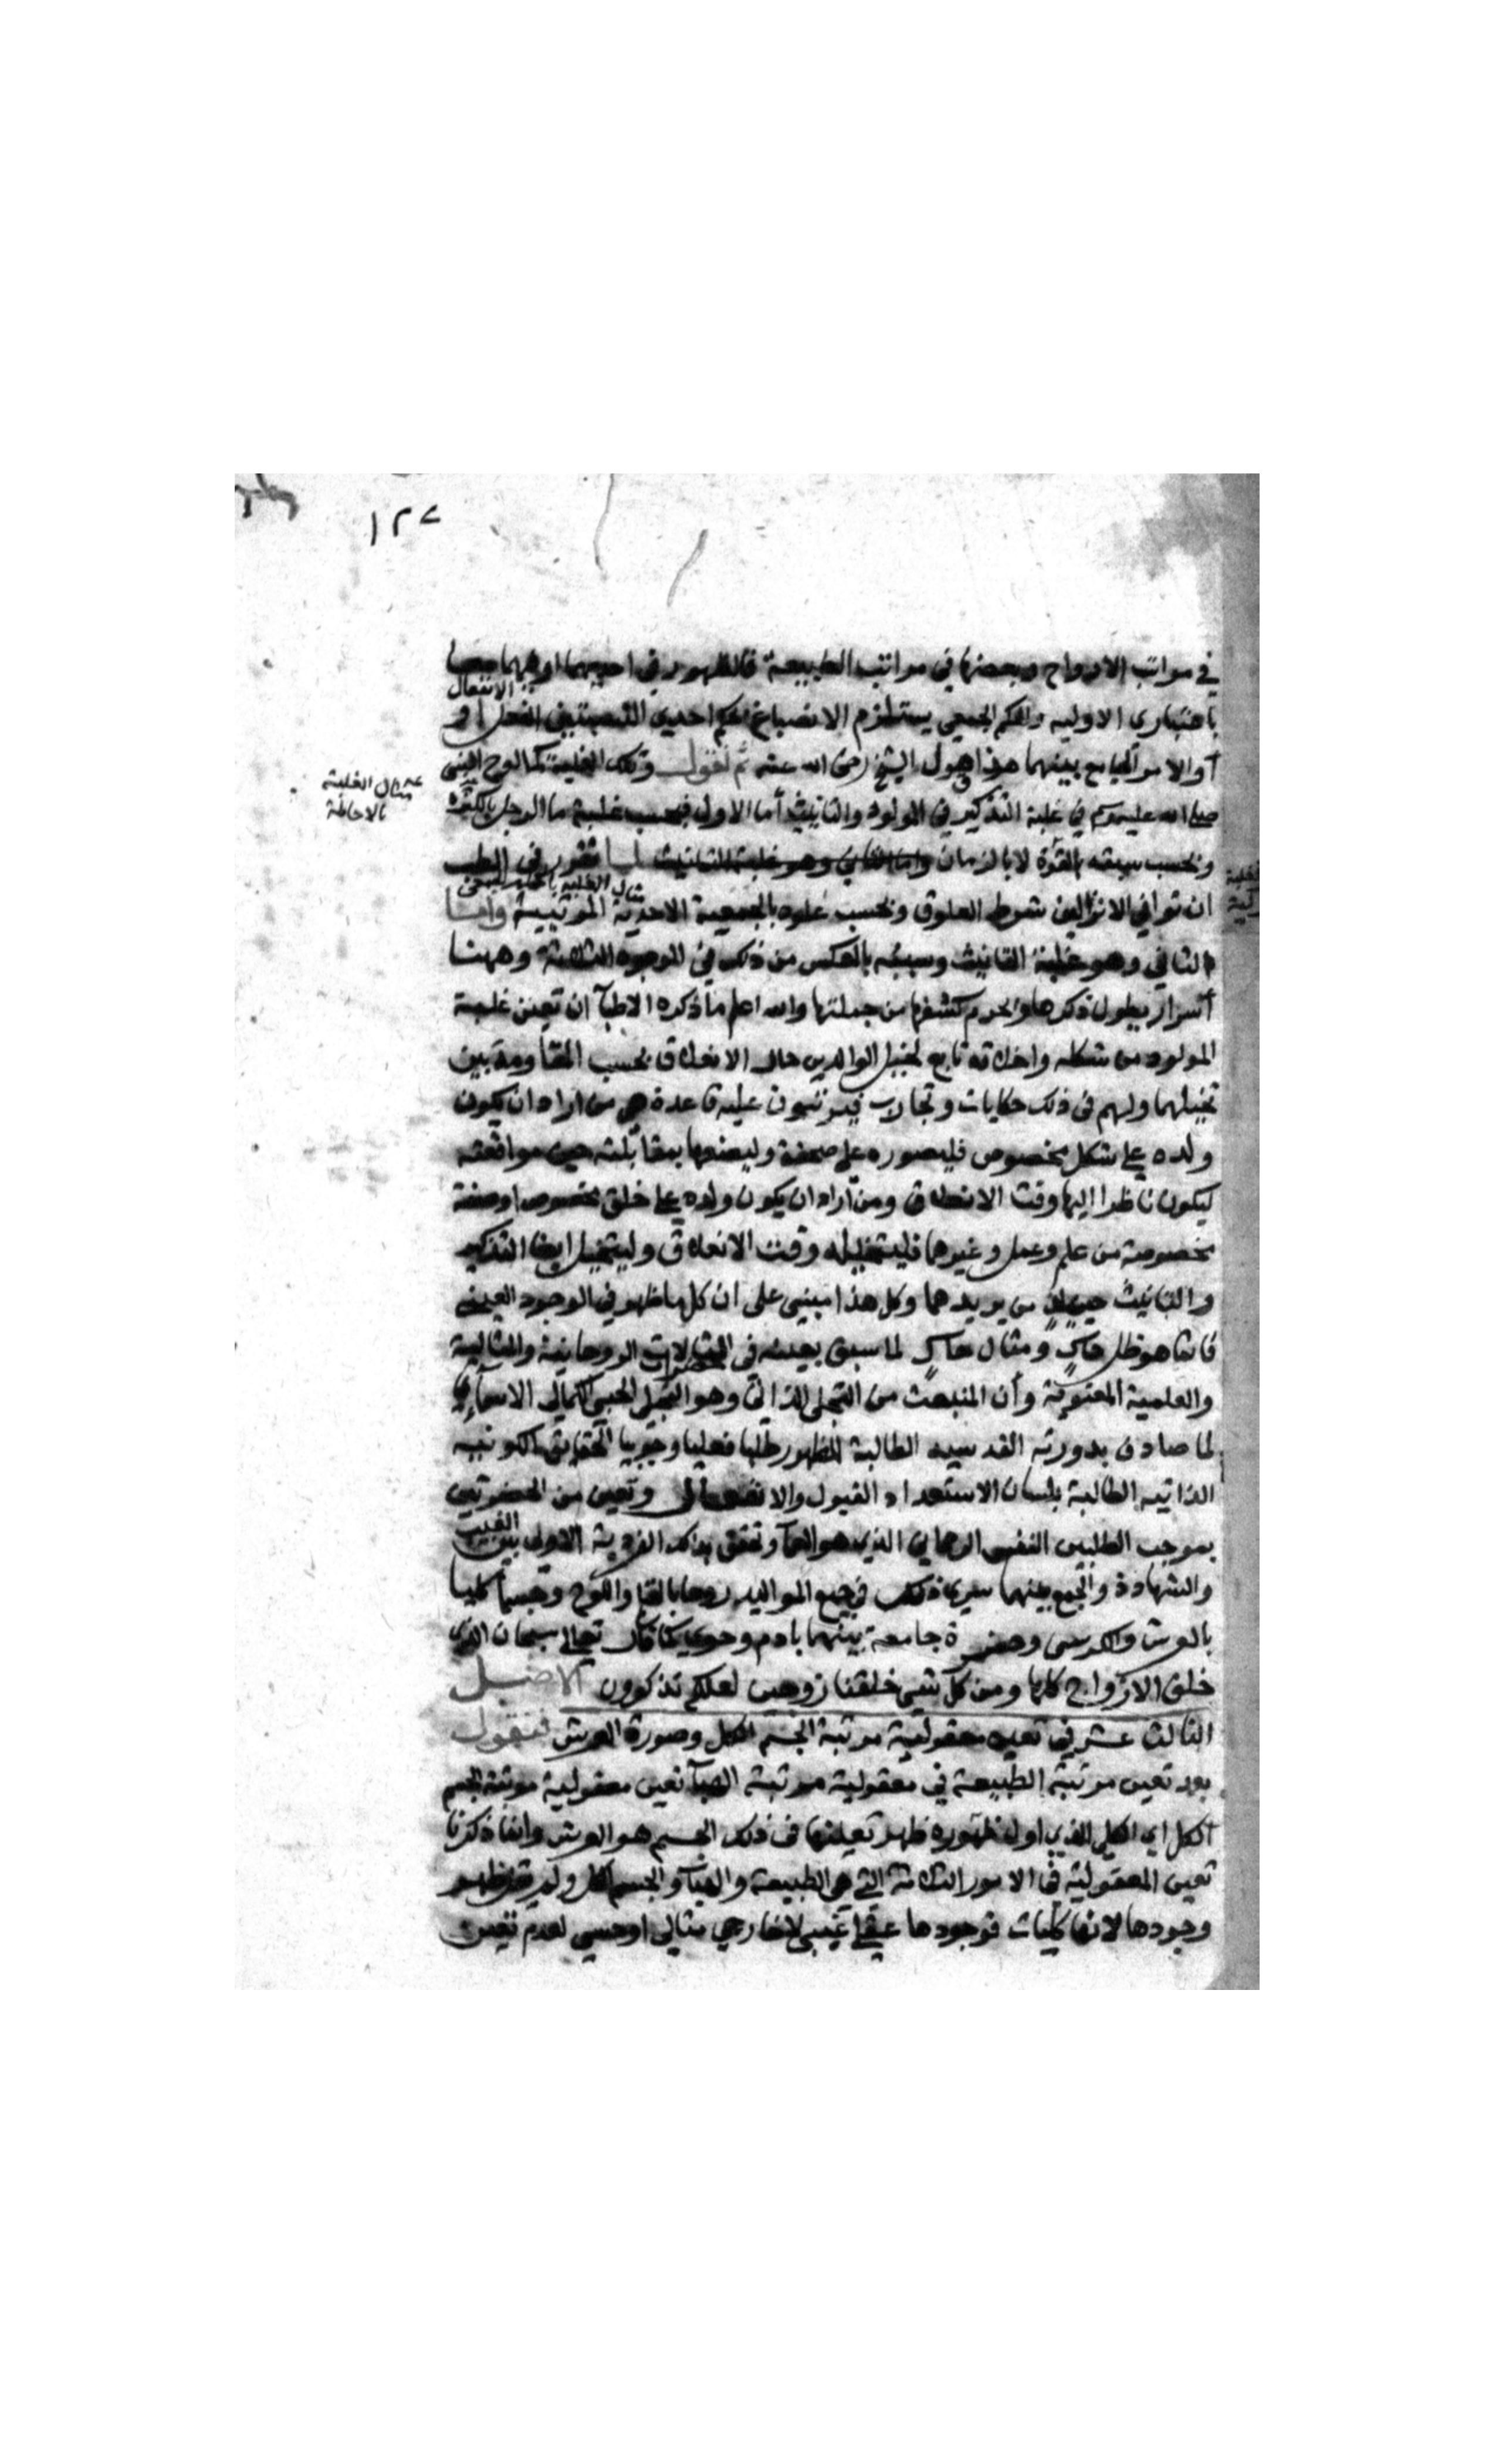 ١٢٧
في مراتب الارواح وبعضها في مراتب الطبيعة فالظهور في احديهما او فيهما معا
الانفعال
باعتباري الاولية والحكم الجمعي يستلزم الانصباغ بحكم احدي النسبتين الفعل او
أو الامر الجامع بينهما هذا هو قول الشيخ رضى الله عنه ثم نقول وتلك الغلبة كما لوح النبي
مثال الغلبة
بالاحاطة
صلى الله عليه وسلم في غلبة التذكير في المولود والتانيث أما الاول فبحسب غلبة ماء الرجل بالكثرة
وبحسب سبقه بالقوة لا بالزمان لما تقرر في الطب
ان توافي الانزالين شرط العلوق وبحسب علوه بالجمعية الاحدية المرتبية وأما
الثاني وهو غلبة التانيث وسببه بالعكس من ذلك في الوجوه الثلاثة وههنا
أسرار يطول ذكرها ويحرم كشفها من جملتها والله اعلم ما ذكره الاطبآ ان تعين غلبة
المولود من شكله واخلاقه تابع لتخيل الوالدين حال الانعلاق بحسب المقاومة بين
تخيلهما ولهم في ذلك حكايات وتجارب فيؤسسون عليه قاعدة هي من اراد ان يكون
ولده على شكل مخصوص فليصوره على صحفة وليضعها بمقابلته حين مواقعته
ليكون ناظرا اليها وقت الانعلاق ومن أراد ان يكون ولده على خلق مخصوص او صفة
مخصوصة من علم وعمل وغيرهما فليتخيله وقت الانعلاق وليتخيل ايضا التذكير
والتانيث حينئذ من يريدهما وكل هذا مبني على ان كل ما ظهر في الوجود العيني
فانما هو ظل حاكٍ ومثال حاكٍ لما سبق بعينه في الروحانية والمثالية
والعلمية المعنوية وأن المنبعث من التجلي الذاتي وهو التجلي الحبي الكمالي الاسمآئي
لما صادف بدورته القدسية الطالبة للظهور طلبا فعليا وجوبيا الحقايق الكونية
الذاتية الطالبة بلسان الاستعداد القبول والانفعال وتعين من الحضرتين
بموجب الطلبين النفس الرحماني الذي هو العمآ وتحقق بذلك الفردية الاولى بين الغيب
والشهادة والجمع بينهما سرى ذلك في جميع المواليد روحا بالقلم واللوح وجسما كليا
بالعرش والكرسي وحضرة جامعة بينهما بادم وحوى كما قال تعالى سبحان الذي
خلق الازواج كلها ومن كل شيئ خلقنا زوجين لعلكم تذكرون الاصل
الثالث عشر في تعين معقولية مرتبة الجسم الكل وصورة العرش فنقول
بعد تعين مرتبة الطبيعة في معقولية مرتبة الهبآ تعين معقولية مرتبة الجسم
الكل اي الكلي الذي اول ظهوره ظهر تعينها في ذلك الجسم هو العرش وانما ذكرنا
تعين المعقولية في الامور الثلاثة التي هي الطبيعة والهبآ والجسم الكل ولم نقل ظهر
وجودها لانها كليات فوجودها عقلي غيبي لا خارجي مثالي او حسي لعدم تعين